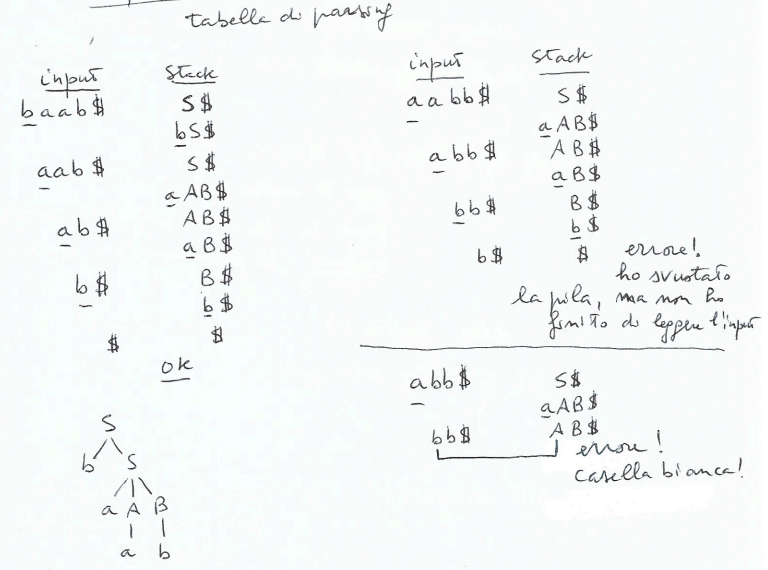 tabella di parsing
input Stack
baab$ S$
bS$
aab$ S$
aAB$
ab$ AB$
aB$
b$ B$
b$
$ $
ok
S
b S
a A B
a b
input Stack
aabb$ S$
aAB$
abb$ AB$
aB$
bb$ B$
b$
b$ $ errore!
ho svuotato
la pila, ma non ho
finito di leggere l'input
abb$ S$
aAB$
bb$ AB$
errore!
casella bianca!